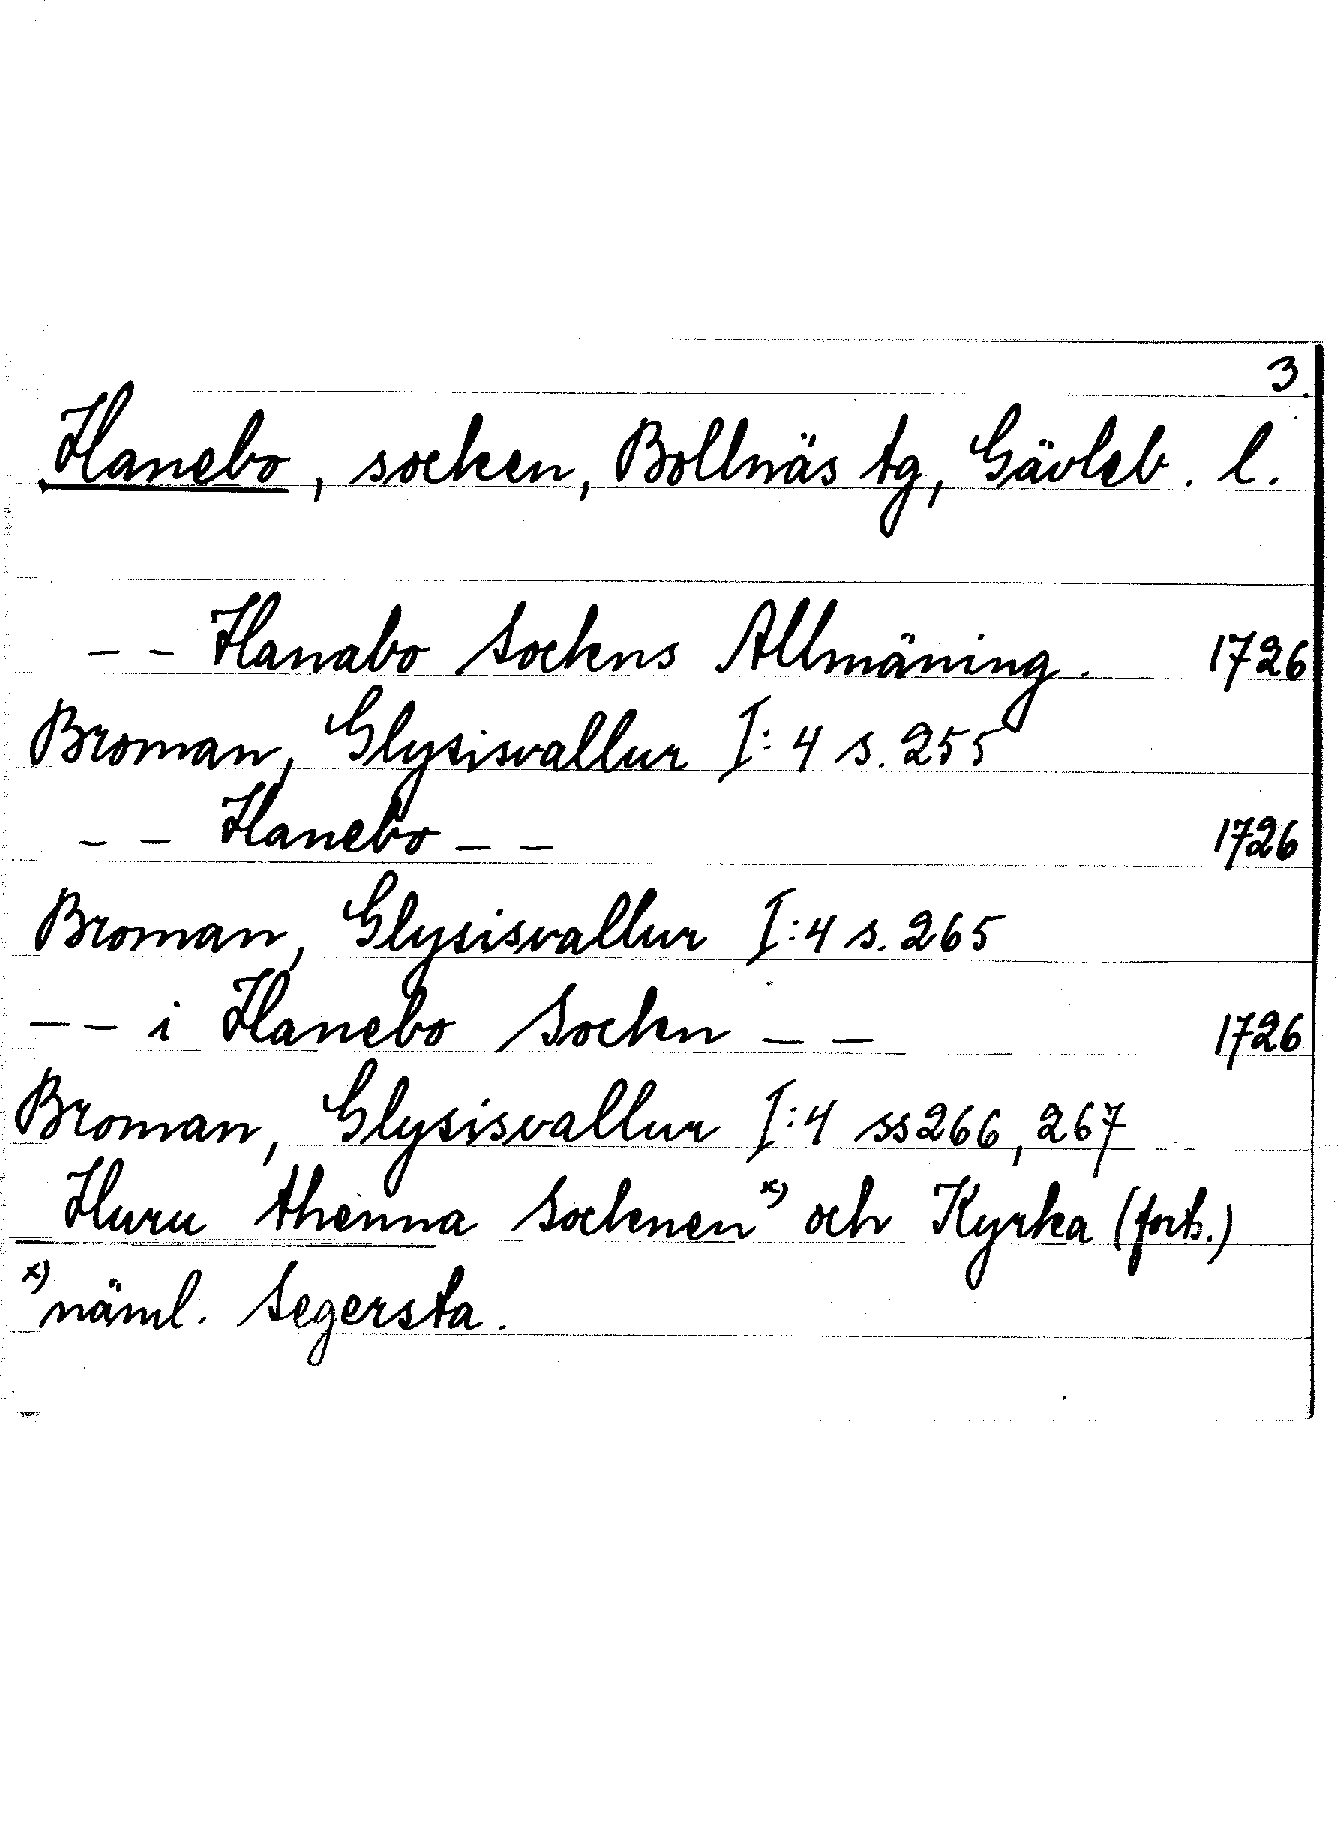 3.
Hanebo, socken, Bollnäs tg, Gävleb. l.
-- Hanabo Sockns Allmäning. 1726
Broman, Glysisvallur I:4 s. 255
-- Hanebo -- 1726
Broman, Glysisvallur I:4 s. 265
-- i Hanebo Sockn -- 1726
Broman, Glysisvallur I:4 ss 266, 267
Huru thenna Socknen x) och Kyrka (forts.)
x) näml. Segersta.